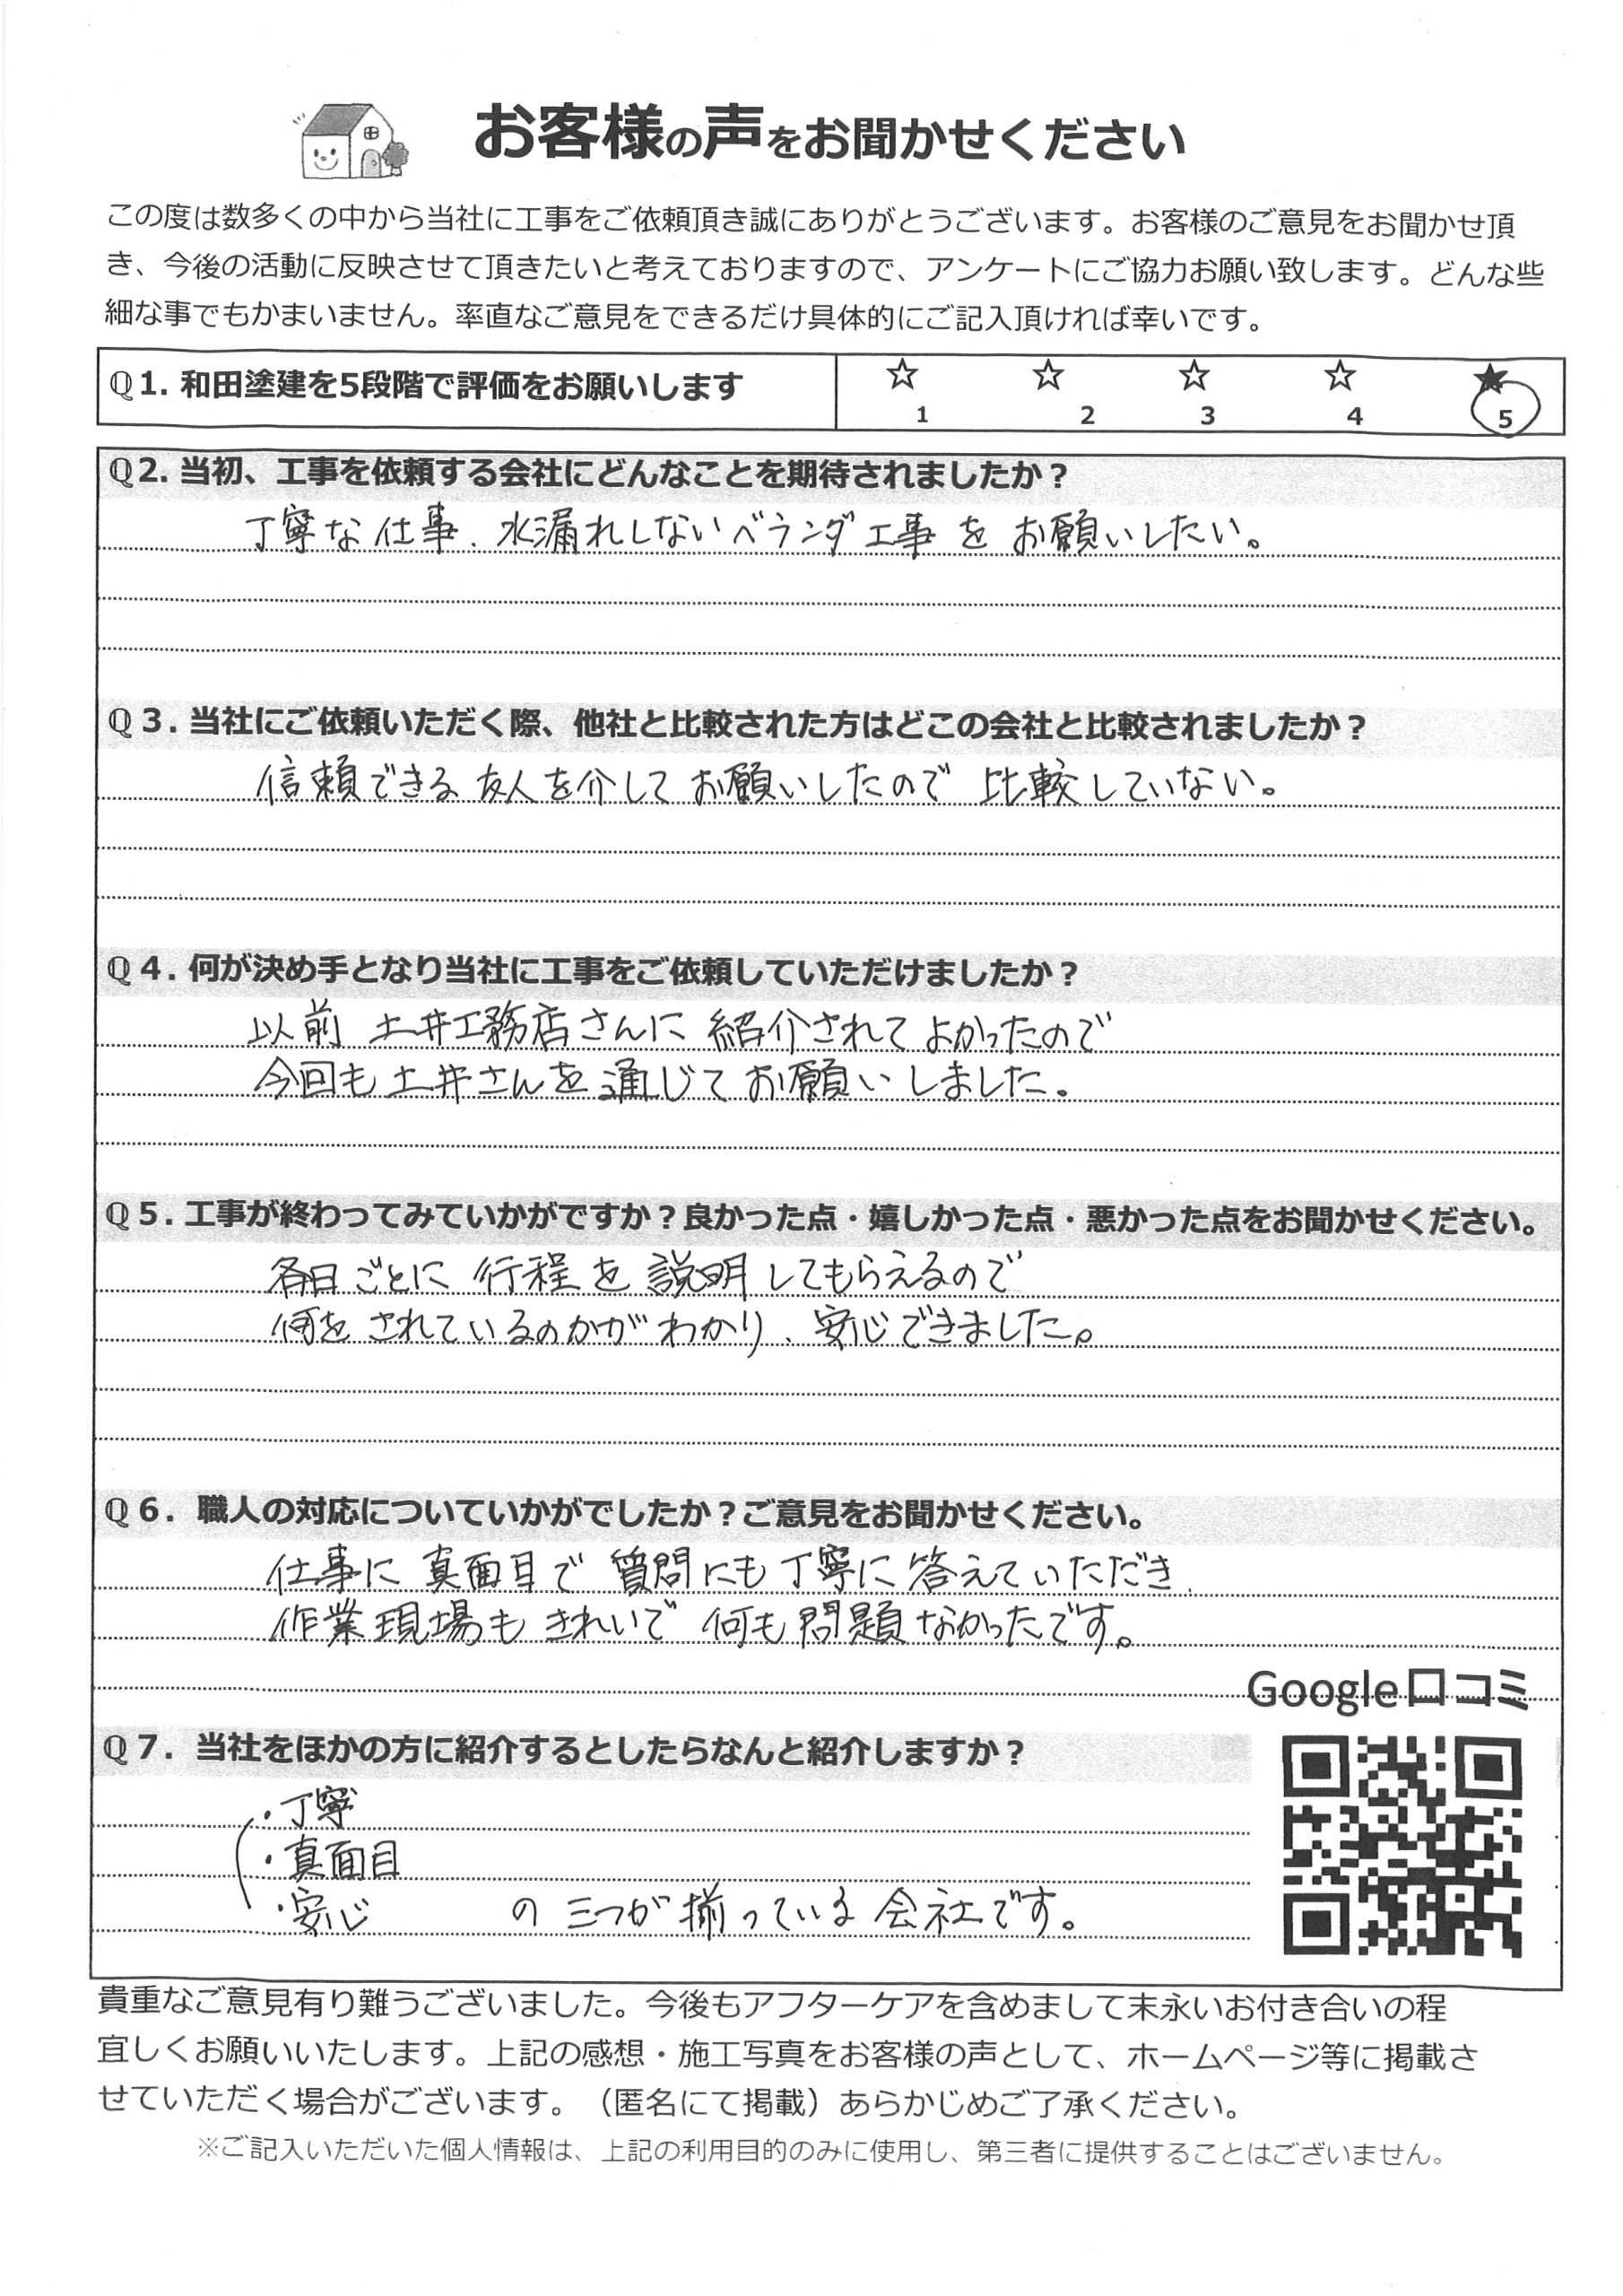 お客様の声をお聞かせください
この度は数多くの中から当社に工事をご依頼頂き誠にありがとうございます。お客様のご意見をお聞かせ頂
き、今後の活動に反映させて頂きたいと考えておりますので、アンケートにご協力お願い致します。どんな些
細な事でもかまいません。率直なご意見をできるだけ具体的にご記入頂ければ幸いです。
Q1. 和田塗建を5段階で評価をお願いします
☆ ☆ ☆ ☆ ★
1 2 3 4 5
Q2. 当初、工事を依頼する会社にどんなことを期待されましたか？
丁寧な仕事、水漏れしないベランダ工事をお願いしたい。
Q３. 当社にご依頼いただく際、他社と比較された方はどこの会社と比較されましたか？
信頼できる友人を介してお願いしたので比較していない。
Q４. 何が決め手となり当社に工事をご依頼していただけましたか？
以前 土井工務店さんに紹介されてよかったので
今回も土井さんを通じてお願いしました。
Q５. 工事が終わってみていかがですか？良かった点・嬉しかった点・悪かった点をお聞かせください。
各日ごとに行程を説明してもらえるので
何をされているのかがわかり、安心できました。
Q６. 職人の対応についていかがでしたか？ご意見をお聞かせください。
仕事に真面目で質問にも丁寧に答えていただき、
作業現場もきれいで何も問題なかったです。
Google口コミ
Q７. 当社をほかの方に紹介するとしたらなんと紹介しますか？
・丁寧
・真面目
・安心 の三つが揃っている会社です。
貴重なご意見有り難うございました。今後もアフターケアを含めまして末永いお付き合いの程
宜しくお願いいたします。上記の感想・施工写真をお客様の声として、ホームページ等に掲載さ
せていただく場合がございます。（匿名にて掲載）あらかじめご了承ください。
※ご記入いただいた個人情報は、上記の利用目的のみに使用し、第三者に提供することはございません。